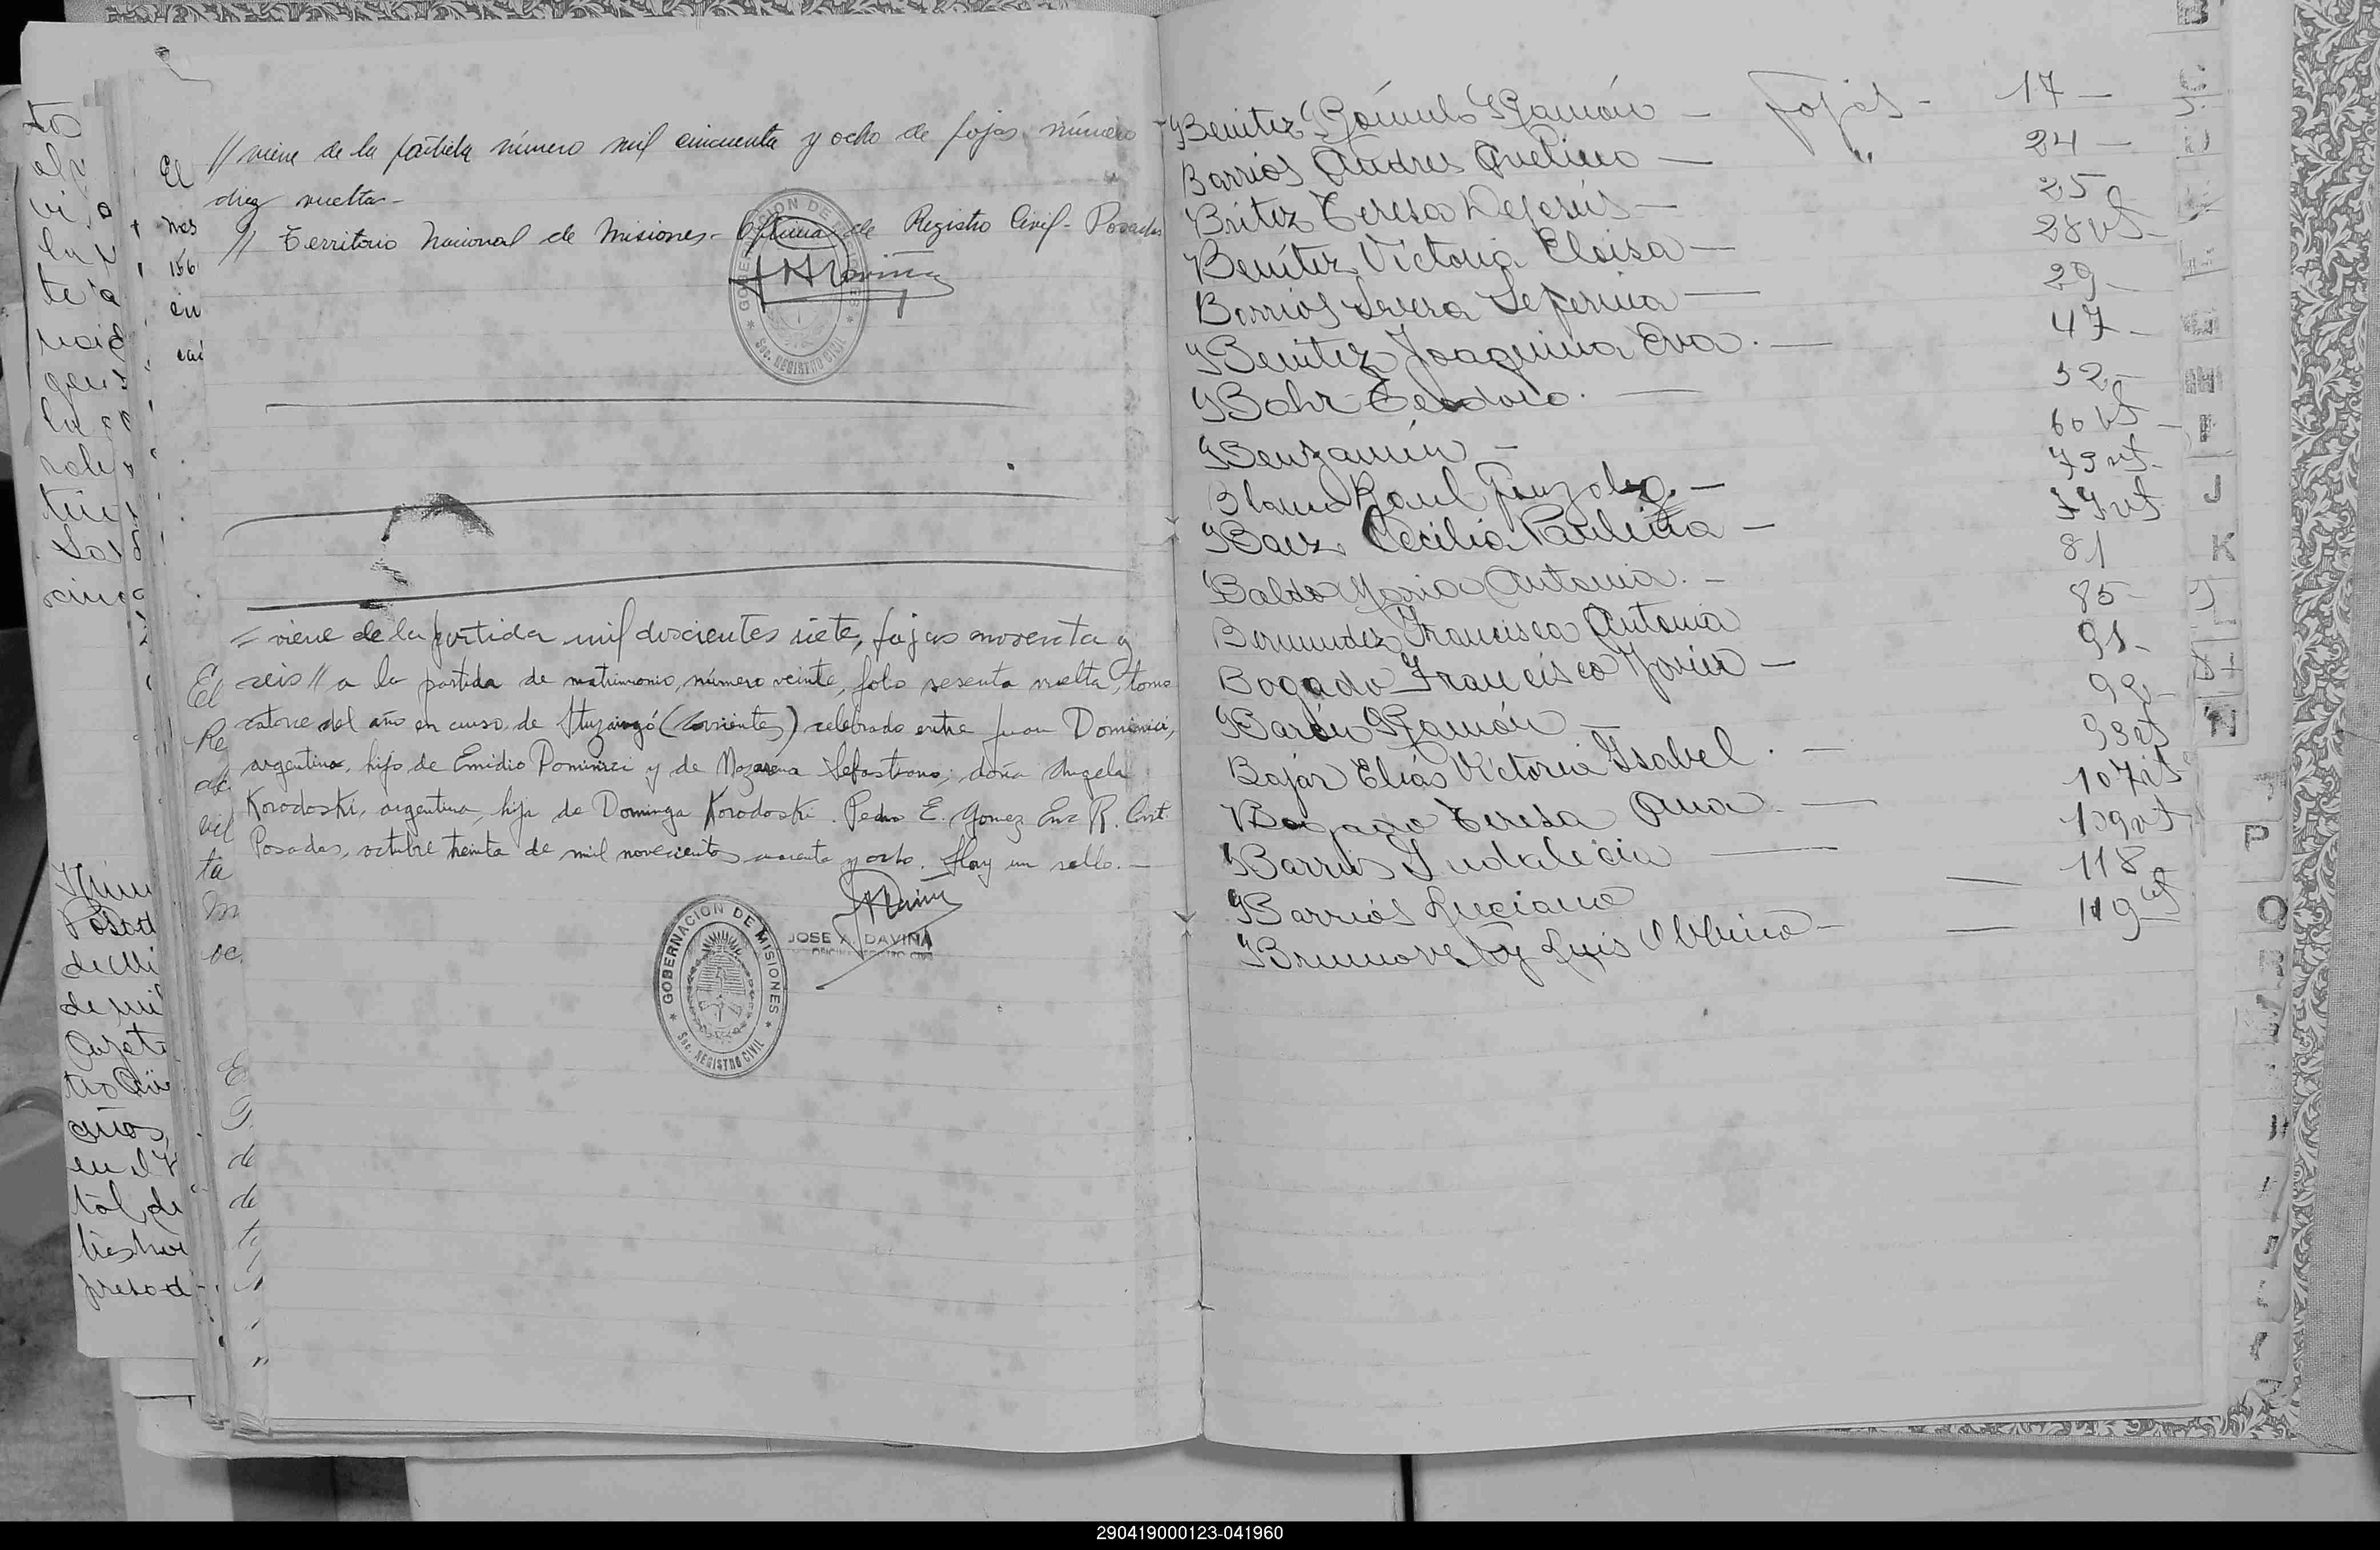 // viene de la partida número mil cincuenta y ocho de fojas número
diez vuelta-
// Territorio Nacional de Misiones- Oficina de Registro Civil- Posadas
GOBERNACION DE MISIONES
Sec. REGISTRO CIVIL
= viene de la partida mil doscientos siete, fojas noventa y
seis // a la partida de matrimonio, número veinte, folio sesenta vuelta, tomo
catorce del año en curso, de Ituzaingó (Corrientes) celebrado entre Juan Dominici,
argentino, hijo de Emidio Dominici y de Nazarena Sebastiano; doña Angela
Korodoski, argentina, hija de Dominga Korodoski. Pedro E. Gomez Enc R. Civil.
Posadas, octubre treinta de mil novecientos cuarenta y ocho. Hay un sello.-
JOSE A. DAVIÑA
GOBERNACION DE MISIONES
Sec. REGISTRO CIVIL
Benitez Rómulo Ramón - fojas - 17 -
Barrios Andres Avelino - " 24 -
Britez Teresa Dejesús - 25
Benítez Victoria Eloisa - 28 vt -
Barrios Severa Seferina - 29 -
Benitez Joaquina Eva. - 47 -
Bohr Teodoro. - 52 -
Benzamín - 60 vt -
Blanco Raul Gonzalez. - 73 vt -
Baez Cecilia Paulina - 77 vt
Baldo Maria Antonia. - 81
Bermudez Francisca Antonia 85 -
Bogado Francisco Javier - 91 -
Barón Ramón - 92 -
Bajár Elías Victoria Isabel. - 93 vt
Bogado Teresa Ana. - 107 vt
Barrios Indalecia - 109 vt
Barrios Luciano - 118
Luis - 119 vt
B
C
H
I
J
K
L
N
P
Q
R
290419000123-041960